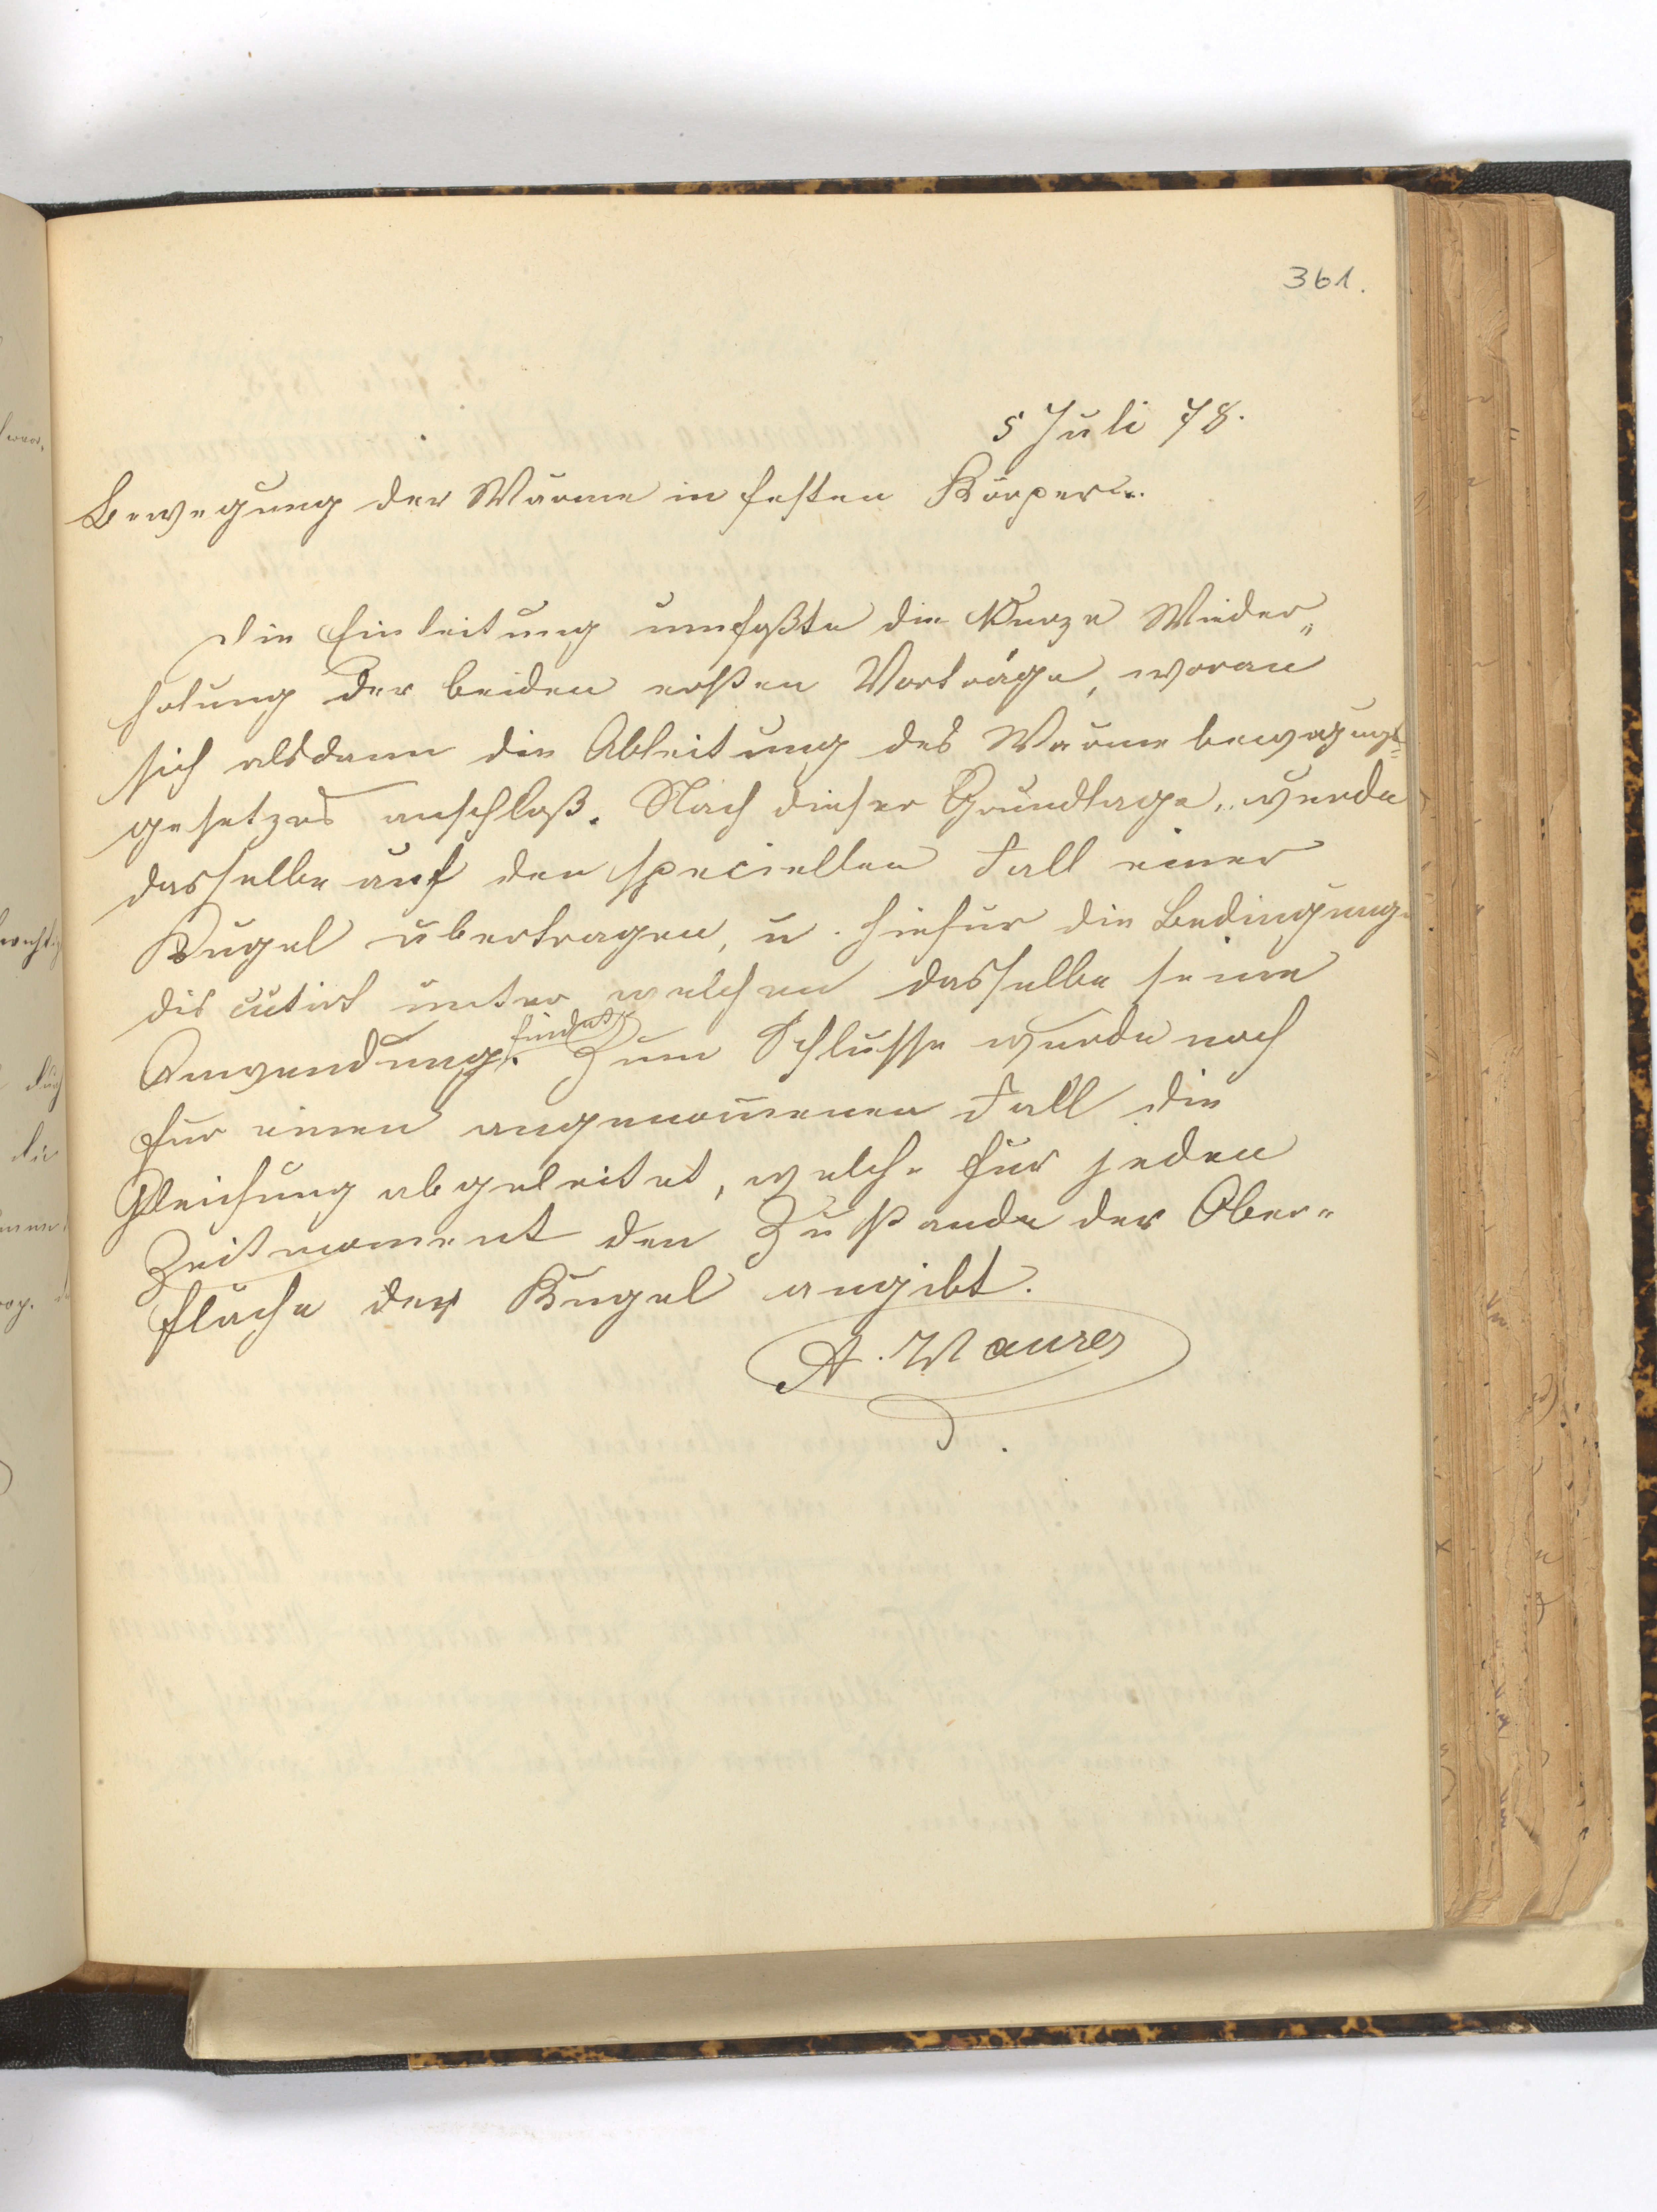 361.
5 Juli 78.
Bewegung der Wärme in festen Körpern.
Die Einleitung umfaßte die Kurze Wieder„
holung der beiden ersten Vorträge, woran
sich alsdann die Ableitung des Wärmebewegungs=
gesetzes anschloß. Nach dieser Grundlage, wurde
dasselbe auf den speciellen Fall einer
Kugel übertragen, u. hiefür die Bedingungen
discutirt unter welchen dasselbe seine
Anwendung findet. Zum Schlusse wurde noch
für einen angenom̅enen Fall die
Gleichung abgeleitet, welche für jeden
Zeitmoment den Zustande der Ober„
fläche der Kugel angibt.
A. Maurer